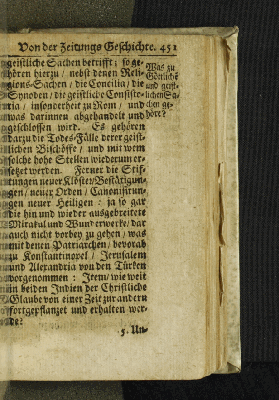 Von der Zeitungs Geschichte. 451
geistliche Sachen betrifft; so ge-
hören hierzu / nebst denen Reli-
gions-Sachen / die Concilia / die
Synoden / die geistliche Consisto-
ria / insonderheit zu Rom / und
was darinnen abgehandelt und
geschlossen wird. Es gehören
darzu die Todes-Fälle derer geist-
lichen Bischöffe / und mit wem
solche hohe Stellen wiederum er-
setzet werden. Ferner die Stif-
tungen neuer Klöster / Bestätigun-
gen / neuer Orden / Canonisirun-
gen neuer Heiligen: ja so gar
die hin und wieder ausgebreitete
Mirakul und Wunderwerke / dar
auch nicht vorbey zu gehen / was
mit denen Patriarchen / bevorab
zu Konstantinopel / Jerusalem
und Alexandria von den Türken
vorgenommen: Item / wie weit
in beiden Indien der Christliche
Glaube von einer Zeit zur andern
fortgepflanzet und erhalten wer-
de?
Was zu
Göttliche
und geist-
lichen Sa-
chen ge-
hört?
5. Un-